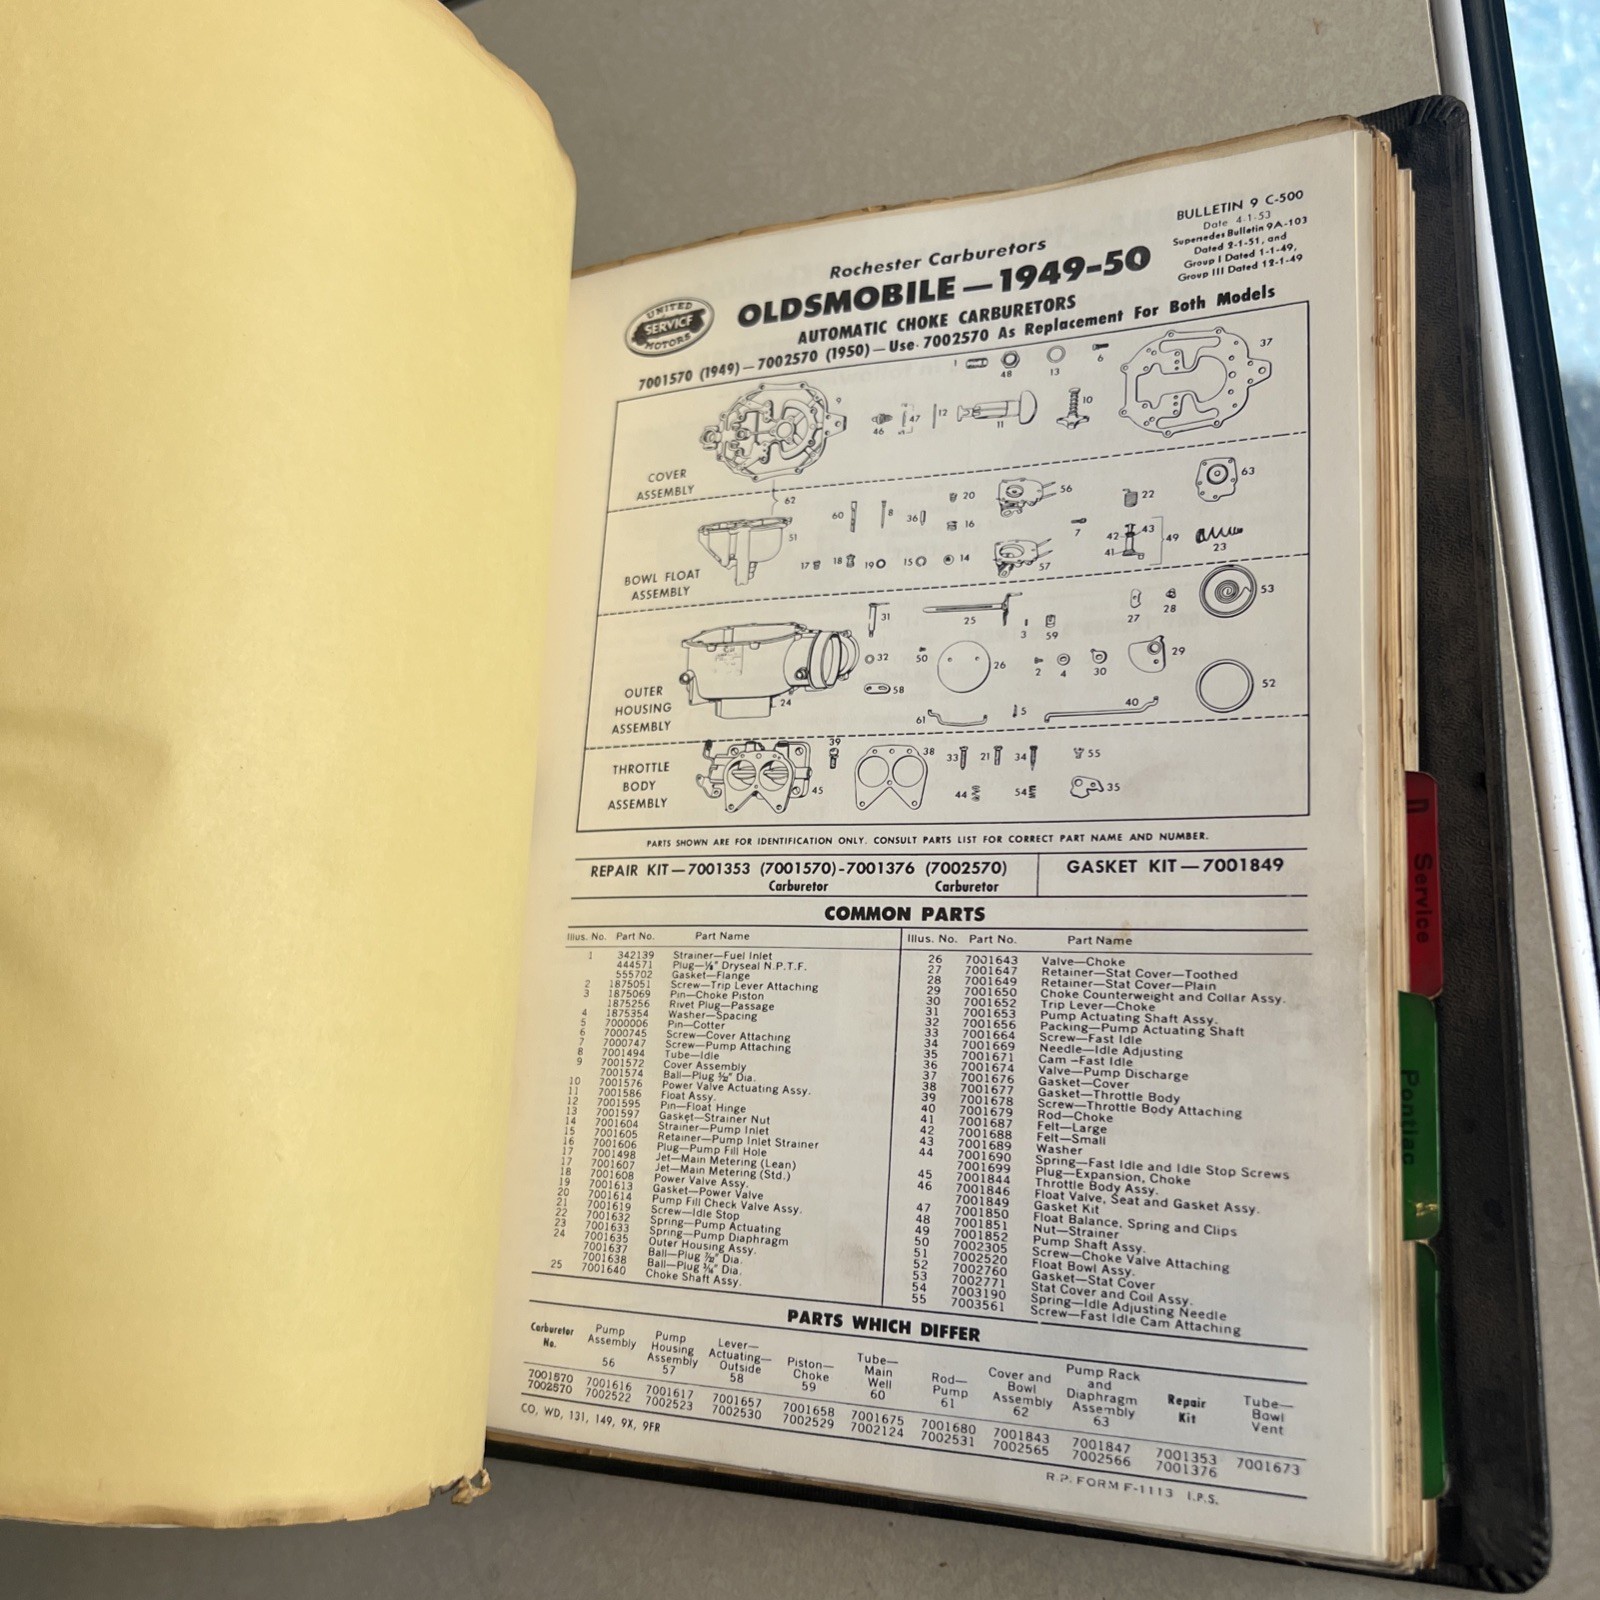 BULLETIN 9 C-500
Date 4-1-53
Supersedes Bulletin 9A-103
Dated 2-1-51, and
Group I Dated 1-1-49,
Group III Dated 12-1-49
Rochester Carburetors
UNITED
SERVICE
MOTORS
OLDSMOBILE—1949-50
AUTOMATIC CHOKE CARBURETORS
7001570 (1949)—7002570 (1950)—Use 7002570 As Replacement For Both Models
1 48 13 6 37
9 46 47 12 11 10
COVER
ASSEMBLY
62 60 8 36 20 16 56 22 63
51 17 18 19 15 14 57 7 42 43 41 49 23
BOWL FLOAT
ASSEMBLY
31 25 3 59 27 28 53
32 50 26 2 4 30 29
58 24 61 5 40 52
OUTER
HOUSING
ASSEMBLY
39 38 33 21 34 55
45 44 54 35
THROTTLE
BODY
ASSEMBLY
PARTS SHOWN ARE FOR IDENTIFICATION ONLY. CONSULT PARTS LIST FOR CORRECT PART NAME AND NUMBER.
REPAIR KIT—7001353 (7001570)-7001376 (7002570)
Carburetor Carburetor
GASKET KIT—7001849
COMMON PARTS
Illus. No. Part No. Part Name
1 342139 Strainer—Fuel Inlet
444571 Plug—⅛" Dryseal N.P.T.F.
555702 Gasket—Flange
2 1875051 Screw—Trip Lever Attaching
3 1875069 Pin—Choke Piston
1875256 Rivet Plug—Passage
4 1875354 Washer—Spacing
5 7000006 Pin—Cotter
6 7000745 Screw—Cover Attaching
7 7000747 Screw—Pump Attaching
8 7001494 Tube—Idle
9 7001572 Cover Assembly
7001574 Ball—Plug Dia.
10 7001576 Power Valve Actuating Assy.
11 7001586 Float Assy.
12 7001595 Pin—Float Hinge
13 7001597 Gasket—Strainer Nut
14 7001604 Strainer—Pump Inlet
15 7001605 Retainer—Pump Inlet Strainer
16 7001606 Plug—Pump Fill Hole
17 7001498 Jet—Main Metering (Lean)
17 7001607 Jet—Main Metering (Std.)
18 7001608 Power Valve Assy.
19 7001613 Gasket—Power Valve
20 7001614 Pump Fill Check Valve Assy.
21 7001619 Screw—Idle Stop
22 7001632 Spring—Pump Actuating
23 7001633 Spring—Pump Diaphragm
24 7001635 Outer Housing Assy.
7001637 Ball—Plug Dia.
7001638 Ball—Plug Dia.
25 7001640 Choke Shaft Assy.
Illus. No. Part No. Part Name
26 7001643 Valve—Choke
27 7001647 Retainer—Stat Cover—Toothed
28 7001649 Retainer—Stat Cover—Plain
29 7001650 Choke Counterweight and Collar Assy.
30 7001652 Trip Lever—Choke
31 7001653 Pump Actuating Shaft Assy.
32 7001656 Packing—Pump Actuating Shaft
33 7001664 Screw—Fast Idle
34 7001669 Needle—Idle Adjusting
35 7001671 Cam—Fast Idle
36 7001674 Valve—Pump Discharge
37 7001676 Gasket—Cover
38 7001677 Gasket—Throttle Body
39 7001678 Screw—Throttle Body Attaching
40 7001679 Rod—Choke
41 7001687 Felt—Large
42 7001688 Felt—Small
43 7001689 Washer
44 7001690 Spring—Fast Idle and Idle Stop Screws
7001699 Plug—Expansion, Choke
45 7001844 Throttle Body Assy.
46 7001846 Float Valve, Seat and Gasket Assy.
7001849 Gasket Kit
47 7001850 Float Balance, Spring and Clips
48 7001851 Nut—Strainer
49 7001852 Pump Shaft Assy.
50 7002305 Screw—Choke Valve Attaching
51 7002520 Float Bowl Assy.
52 7002760 Gasket—Stat Cover
53 7002771 Stat Cover and Coil Assy.
54 7003190 Spring—Idle Adjusting Needle
55 7003561 Screw—Fast Idle Cam Attaching
PARTS WHICH DIFFER
Carburetor No. Pump Assembly 56 Pump Housing Assembly 57 Lever—Actuating—Outside 58 Piston—Choke 59 Tube—Main Well 60 Rod—Pump 61 Cover and Bowl Assembly 62 Pump Rack and Diaphragm Assembly 63 Repair Kit Tube—Bowl Vent
7001570 7001616 7001617 7001657 7001658 7001675 7001680 7001843 7001847 7001353 7001673
7002570 7002522 7002523 7002530 7002529 7002124 7002531 7002565 7002566 7001376
CO, WD, 131, 149, 9X, 9FR
R.P. FORM F-1113 I.P.S.
Service
Pontiac